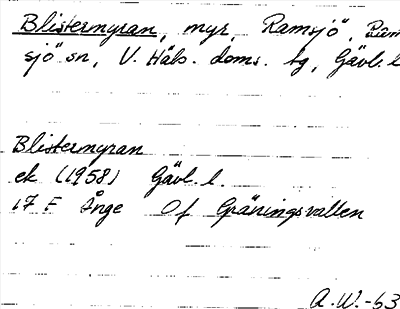 Blistermyran, myr, Ramsjö, Ram
sjö sn, V. Häls. doms. hg, Gävl. l
Blistermyran
ek (1958) Gävl. l.
17 F Ånge Of Gräningsvallen
A.W.-63